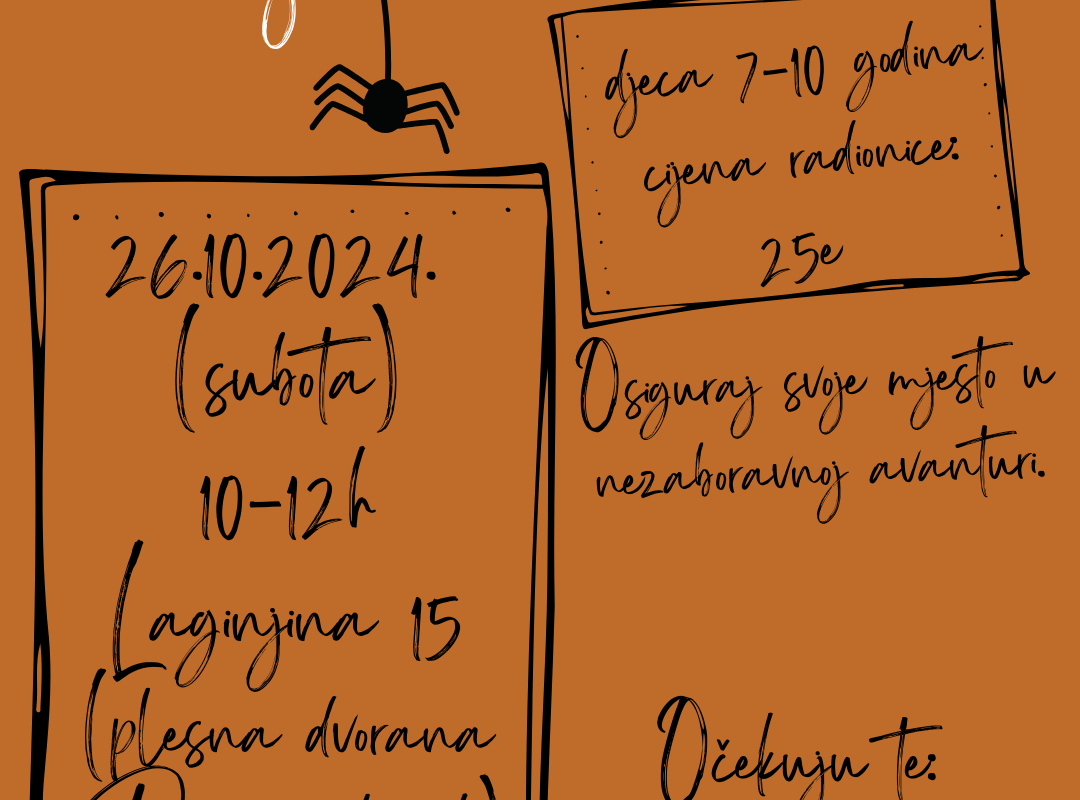 26.10.2024.
(subota)
10-12h
Laginjina 15
(plesna dvorana
djeca 7-10 godina
cijena radionice:
25e
Osiguraj svoje mjesto u
nezaboravnoj avanturi.
Očekuju te: